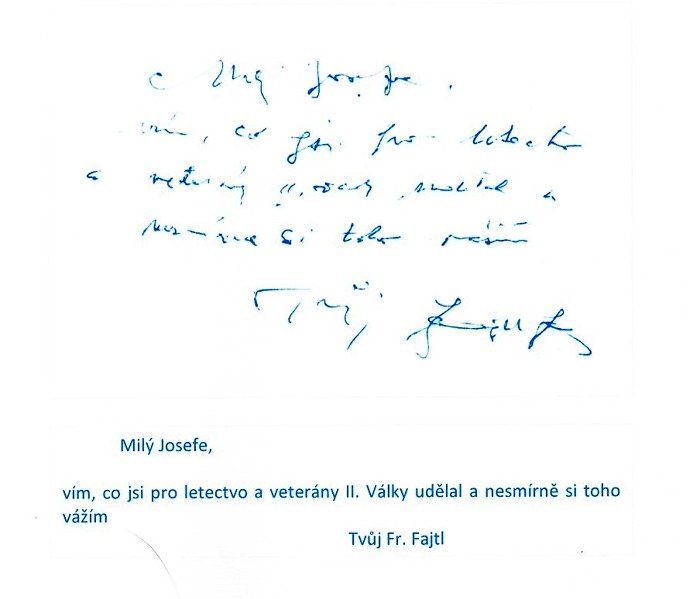 Milý Josefe,
vím, co jsi pro letectvo
a veterány II. války udělal a
nesmírně si toho vážím
Tvůj
Milý Josefe,
vím, co jsi pro letectvo a veterány II. Války udělal a nesmírně si toho
vážím
Tvůj Fr. Fajtl